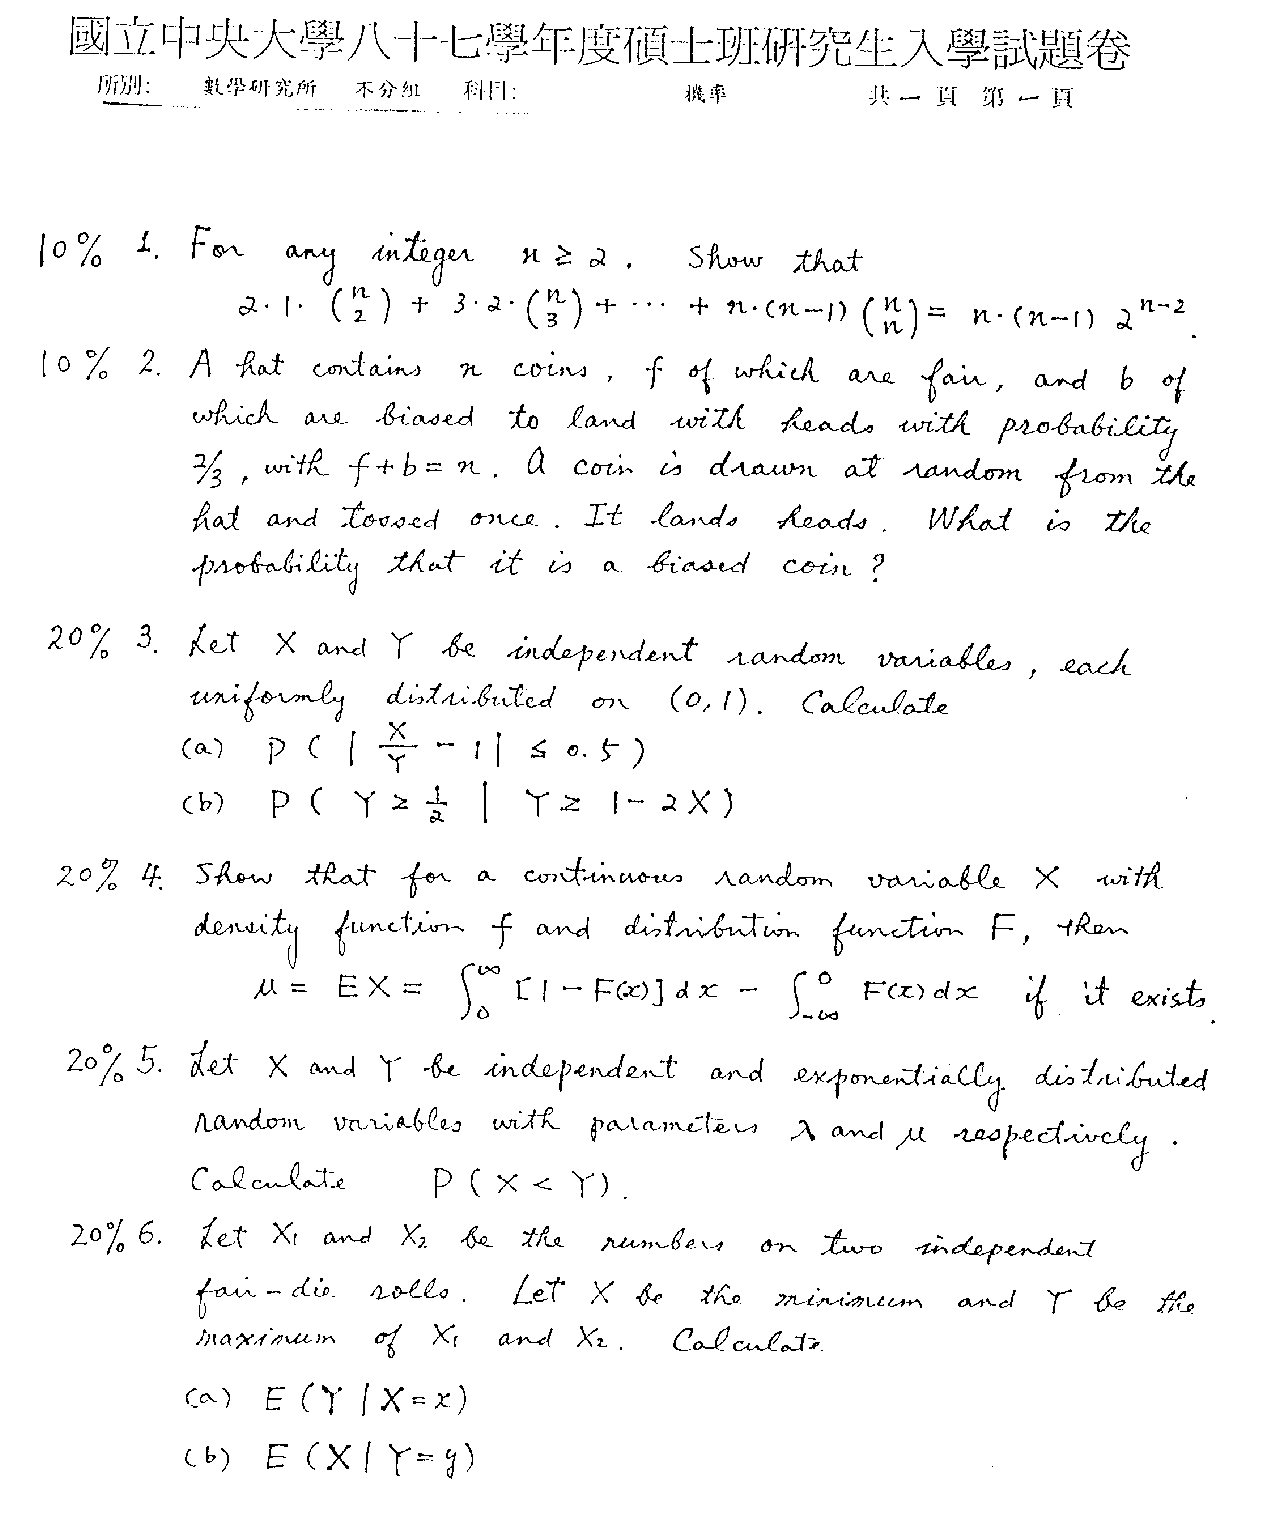 國立中央大學八十七學年度碩士班研究生入學試題卷
所別: 數學研究所 不分組 科目: 機率 共一頁 第一頁
10% 1. For any integer n ≥ 2. Show that
2·1·(n 2) + 3·2·(n 3) + ··· + n·(n-1) (n n) = n·(n-1) 2^{n-2}.
10% 2. A hat contains n coins, f of which are fair, and b of
which are biased to land with heads with probability
2/3, with f+b=n. A coin is drawn at random from the
hat and tossed once. It lands heads. What is the
probability that it is a biased coin?
20% 3. Let X and Y be independent random variables, each
uniformly distributed on (0,1). Calculate
(a) P(|X/Y - 1| ≤ 0.5)
(b) P(Y ≥ 1/2 | Y ≥ 1-2X)
20% 4. Show that for a continuous random variable X with
density function f and distribution function F, then
μ = EX = ∫_0^∞ [1-F(x)]dx - ∫_{-∞}^0 F(x)dx if it exists.
20% 5. Let X and Y be independent and exponentially distributed
random variables with parameters λ and μ respectively.
Calculate P(X < Y).
20% 6. Let X₁ and X₂ be the numbers on two independent
fair-die rolls. Let X be the minimum and Y be the
maximum of X₁ and X₂. Calculate
(a) E(Y|X=x)
(b) E(X|Y=y)